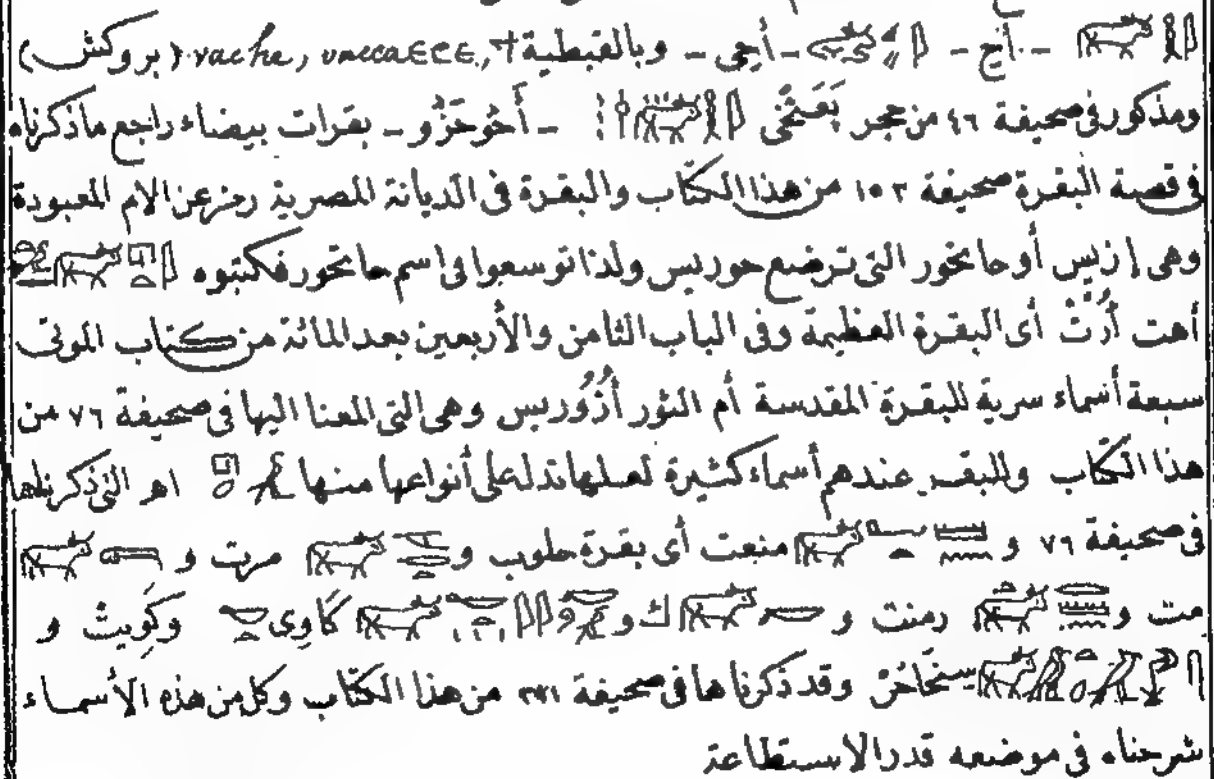 – أج – – أحى – وبالقبطية vache, (بروكش)
ومذكور فى صحيفة ٤٦ من حجر بَعَنْخِى – أَحُوحَزُو – بقرات بيضاء راجع ماذكرناه
فى قصة البقرة صحيفة ١٥٢ من هذا الكتاب والبقرة فى الديانة المصرية رمز عن الام المعبودة
وهى إزيس أو حاتحور التى ترضع حوريس ولذا توسعوا فى اسم حاتحور فكتبوه
أهت أُرُتْ أى البقرة العظيمة وفى الباب الثامن والأربعين بعد المائة من كتاب الموتى
سبعة أسماء سرية للبقرة المقدسة أم الثور أُزُوريس وهى التى المعنا اليها فى صحيفة ٧٦ من
هذا الكتاب وللبقر عندهم أسماء كثيرة لعلها تدل على أنواعها منها اهر التى ذكرناها
فى صحيفة ٧٦ و منعت أى بقرة حلوب و مرت و
مت و رمنت و ك و كَاوِى وكَوِيتْ و
سنحَاحُرْ وقد ذكرناها فى صحيفة من هذا الكتاب وكل من هذه الأسماء
شرحناه فى موضعه قدر الاستطاعة